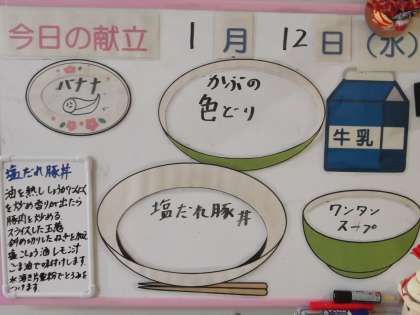 今日の献立 1月12日(水)
バナナ
かぶの
色どり
牛乳
塩だれ豚丼
ワンタン
スープ
塩だれ豚丼
油を熱し しょうが、
を炒め香りが出たら
豚肉を炒める。
スライスした玉葱
斜め切りしたねぎを加え
塩こしょう油レモン汁
ごま油で味付けします。
水溶き片栗粉でとろみを
つけます。